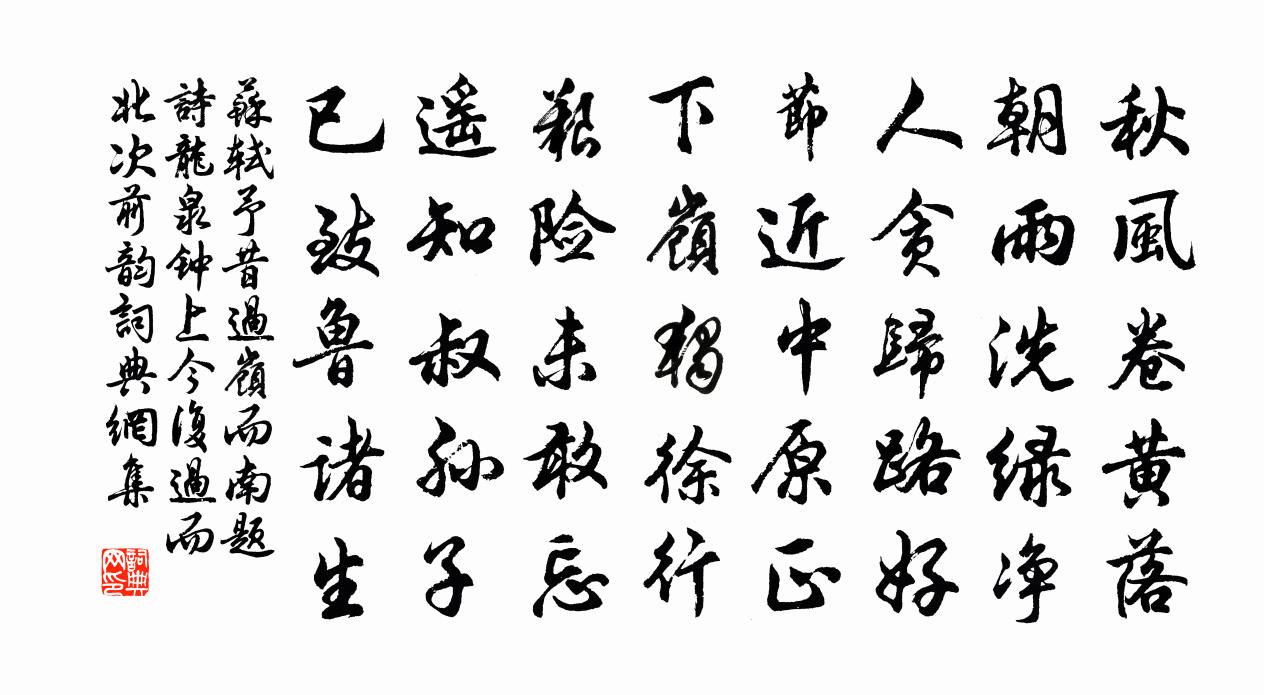 秋風卷黄落
朝雨洗绿净
人贪歸路好
節近中原正
下嶺獨徐行
艱险未敢忘
遥知叔孙子
已致魯诸生
蘇轼予昔過嶺而南题
詩龍泉钟上今復過而
北次前韵詞典網集
詞典网印